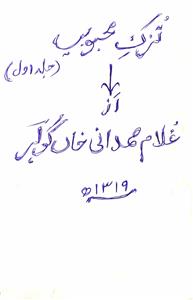 تزکِ محبوبیہ
(جلد اول)
از
غلام صمدانی خاں گوہر
۱۳۱۹ھ